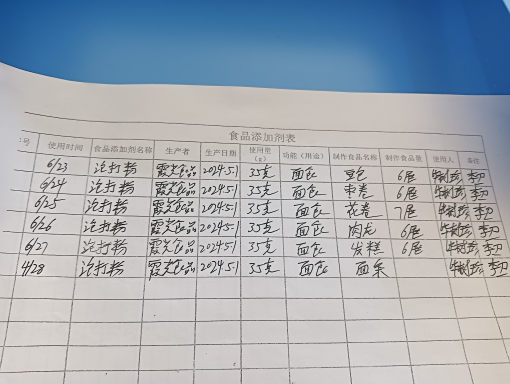 食品添加剂表
号 使用时间 食品添加剂名称 生产者 生产日期 使用量(g) 功能(用途) 制作食品名称 制作食品量 使用人 备注
6/23 泡打粉 霞光食品 2024.5.1 35克 面食 豆包 6屉
6/24 泡打粉 霞光食品 2024.5.1 35克 面食 枣卷 6屉
6/25 泡打粉 霞光食品 2024.5.1 35克 面食 花卷 7屉
6/26 泡打粉 霞光食品 2024.5.1 35克 面食 肉龙 6屉
6/27 泡打粉 霞光食品 2024.5.1 35克 面食 发糕 6屉
4/28 泡打粉 霞光食品 2024.5.1 35克 面食 面条